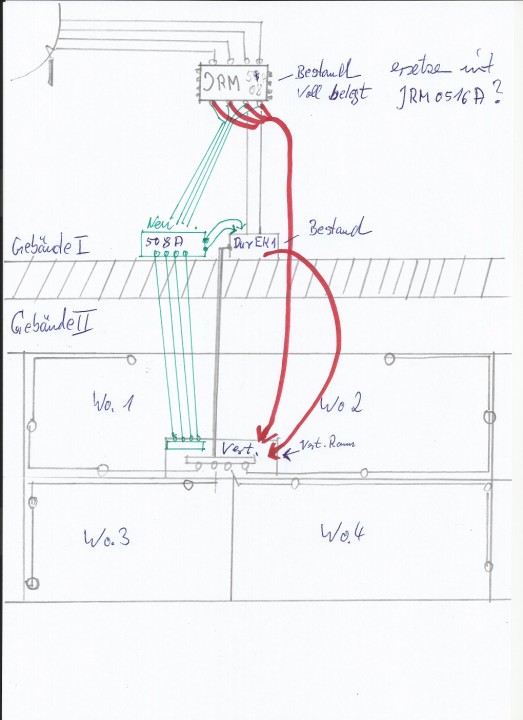 JRM
508
Bestand
Voll belegt
ersetzen mit
JRM0516A?
Neu
508A
Dur EK1
Bestand
Gebäude I
Gebäude II
Wo. 1
Wo 2
Vert.
Vert.-Raum
Wo.3
Wo.4